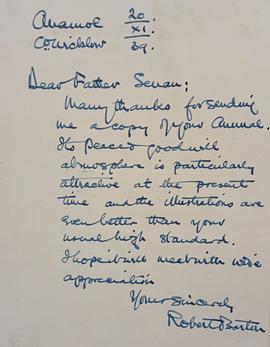 Anamoe 20
Co Wicklow XI
39.
Dear Father Senan:
Many thanks for sending
me a copy of your Annual.
Its peace & goodwill
atmosphere is particularly
attractive at the present
time and the illustrations are
even better than your
usual high standard.
I hope it will meet with wide
appreciation
Yours Sincerely
Robert Barton